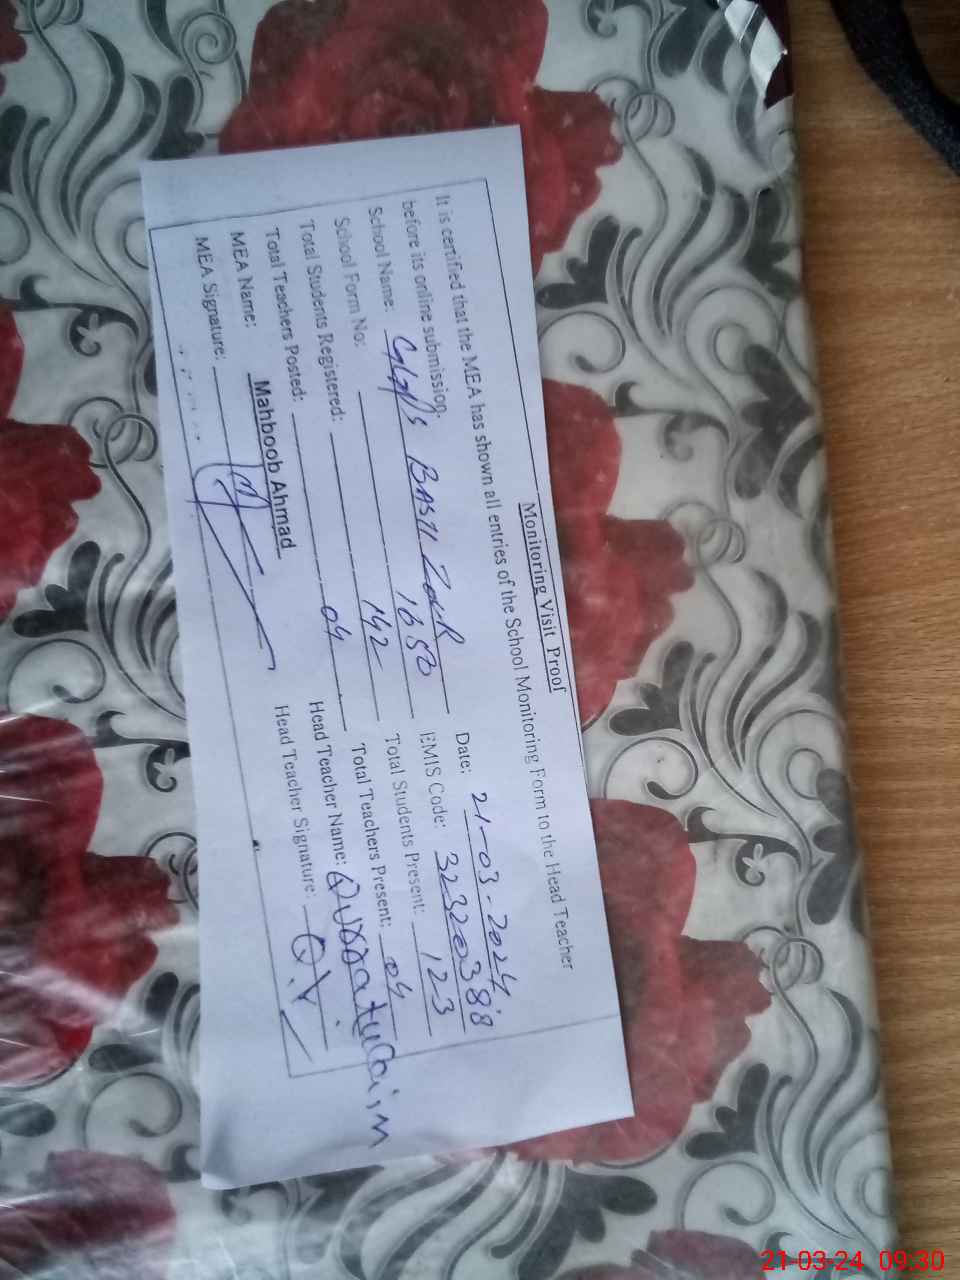 Monitoring Visit Proof
It is certified that the MEA has shown all entries of the School Monitoring Form to the Head Teacher
before its online submission.
School Name: BASTI Date: 21-03-2024
School Form No: 1650 EMIS Code: 32320388
Total Students Registered: 142 Total Students Present: 123
Total Teachers Posted: 04 Total Teachers Present: 04
MEA Name: Mahboob Ahmad Head Teacher Name:
MEA Signature: Head Teacher Signature: Q.Y
21-03-24 09:30